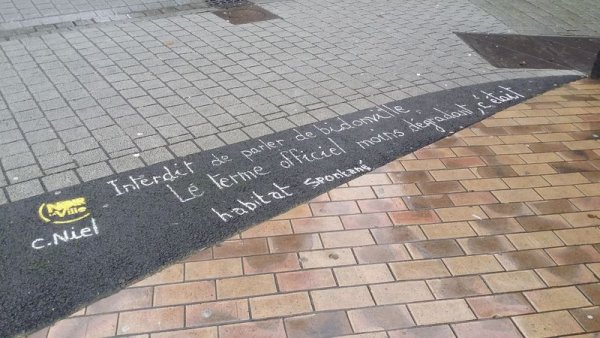 Interdit de parler de bidonville
Lé terme officiel moins dégradant, c'était
habitat spontané
Ville
C. Niel